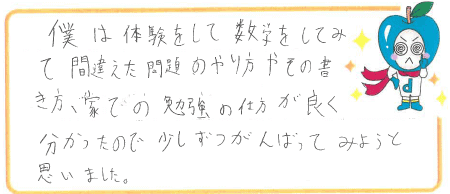 僕は体験をして数学をしてみ
て間違えた問題のやり方やその書
き方、家での勉強の仕方が良く
分かったので少しずつがんばってみようと
思いました。
d